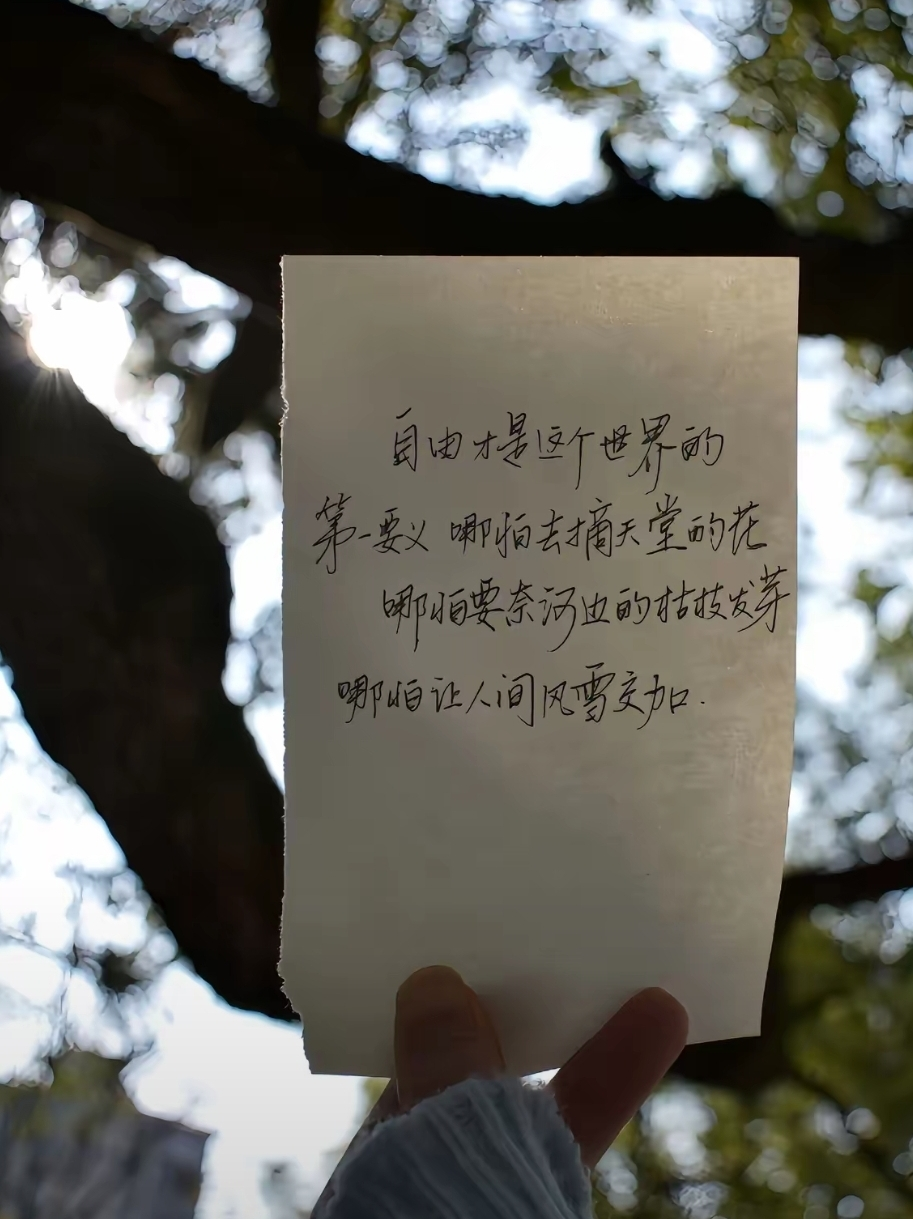 自由才是这个世界的
第一要义 哪怕去摘天堂的花
哪怕要奈河边的枯枝发芽
哪怕让人间风雪交加.